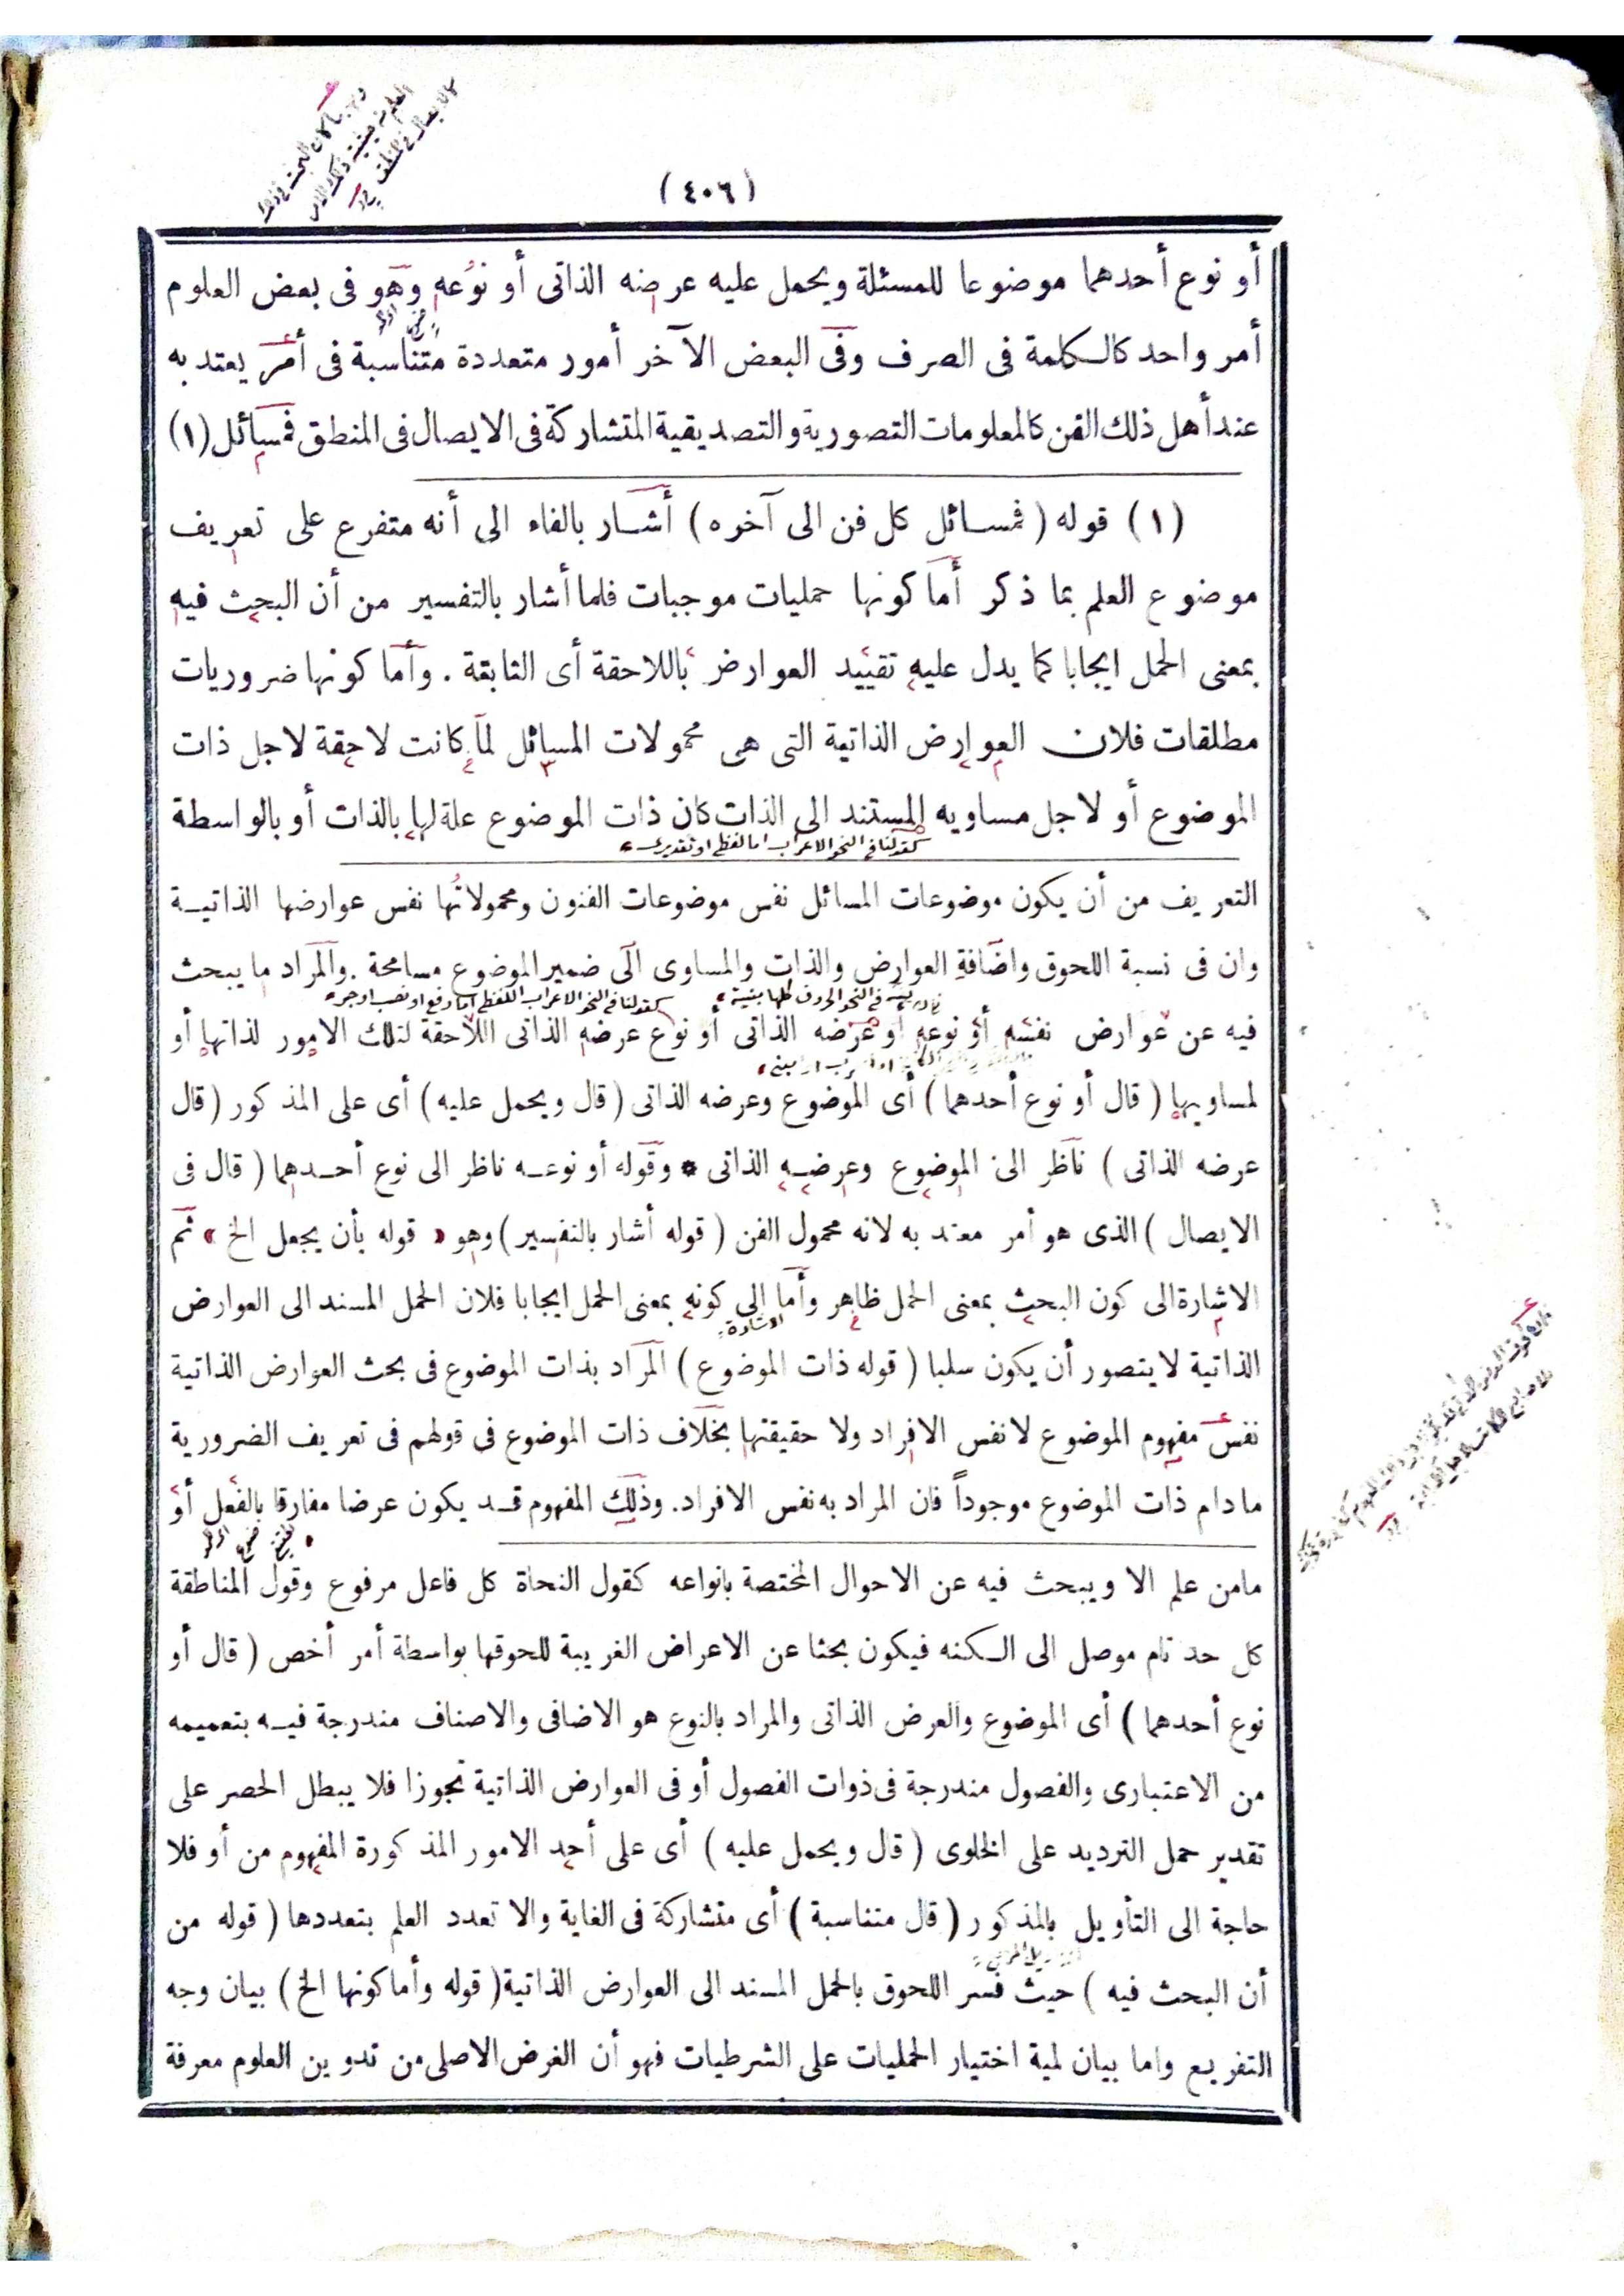 (٤٠٦)
أو نوع أحدهما موضوعا للمسئلة ويحمل عليه عرضه الذاتى أو نوعه وهو فى بعض العلوم
أمر واحد كالكلمة فى الصرف وفى البعض الآخر أمور متعددة متناسبة فى أمر يعتد به
عند أهل ذلك الفن كالمعلومات التصورية والتصديقية المتشاركة فى الايصال فى المنطق فمسائل (١)
(١) قوله (فمسائل كل فن الى آخره) أشار بالفاء الى أنه متفرع على تعريف
موضوع العلم بما ذكر أما كونها حمليات موجبات فلما أشار بالتفسير من أن البحث فيه
بمعنى الحمل ايجابا كما يدل عليه تقييد العوارض باللاحقة أى الثابتة . وأما كونها ضروريات
مطلقات فلان العوارض الذاتية التى هى محمولات المسائل لما كانت لاحقة لاجل ذات
الموضوع أو لاجل مساويه المستند الى الذات كان ذات الموضوع علة لها بالذات أو بالواسطة
كقولنا فى النحو الاعراب اما لفظى او تقديرى
التعريف من أن يكون موضوعات المسائل نفس موضوعات الفنون ومحمولاتها نفس عوارضها الذاتيـة
وان فى نسبة اللحوق واضافة العوارض والذات والمساوى الى ضمير الموضوع مسامحة . والمراد ما يبحث
فى النحو الحروف كلها مبنية
كقولنا فى النحو الاعراب اللفظى اما رفع او نصب او جر
فيه عن عوارض نفسه أو نوعه أو عرضه الذاتى أو نوع عرضه الذاتى اللاحقة لتلك الامور لذاتها أو
لمساويها (قال أو نوع أحدهما) أى الموضوع وعرضه الذاتى (قال ويحمل عليه) أى على المذكور (قال
عرضه الذاتى) ناظر الى الموضوع وعرضـه الذاتى * وقوله أو نوعـه ناظر الى نوع أحـدهما (قال فى
الايصال) الذى هو أمر معتد به لانه محمول الفن (قوله أشار بالتفسير) وهو « قوله بأن يجعل الخ » ثم
الاشارة الى كون البحث بمعنى الحمل ظاهر وأما الى كونه بمعنى الحمل ايجابا فلان الحمل المسند الى العوارض
الاشارة
الذاتية لا يتصور أن يكون سلبا (قوله ذات الموضوع) المراد بذات الموضوع فى بحث العوارض الذاتية
نفس مفهوم الموضوع لا نفس الافراد ولا حقيقتها بخلاف ذات الموضوع فى قولهم فى تعريف الضرورية
ما دام ذات الموضوع موجوداً فان المراد به نفس الافراد. وذلك المفهوم قـد يكون عرضا مفارقا بالفعل أو
مامن علم الا ويبحث فيه عن الاحوال المختصة بانواعه كقول النحاة كل فاعل مرفوع وقول المناطقة
كل حد تام موصل الى الكنه فيكون بحثا عن الاعراض الغريبة للحوقها بواسطة أمر أخص (قال أو
نوع أحدهما) أى الموضوع والعرض الذاتى والمراد بالنوع هو الاضافى والاصناف مندرجة فيـه بتعميمه
من الاعتبارى والفصول مندرجة فى ذوات الفصول أو فى العوارض الذاتية تجوزا فلا يبطل الحصر على
تقدير حمل الترديد على الخلوى (قال ويحمل عليه) أى على أحد الامور المذكورة المفهوم من أو فلا
حاجة الى التأويل بالمذكور (قال متناسبة) أى متشاركة فى الغاية والا تعدد العلم بتعددها (قوله من
أن البحث فيه) حيث فسر اللحوق بالحمل المسند الى العوارض الذاتية (قوله وأما كونها الخ) بيان وجه
التفريع واما بيان لمية اختيار الحمليات على الشرطيات فهو أن الغرض الاصلى من تدوين العلوم معرفة